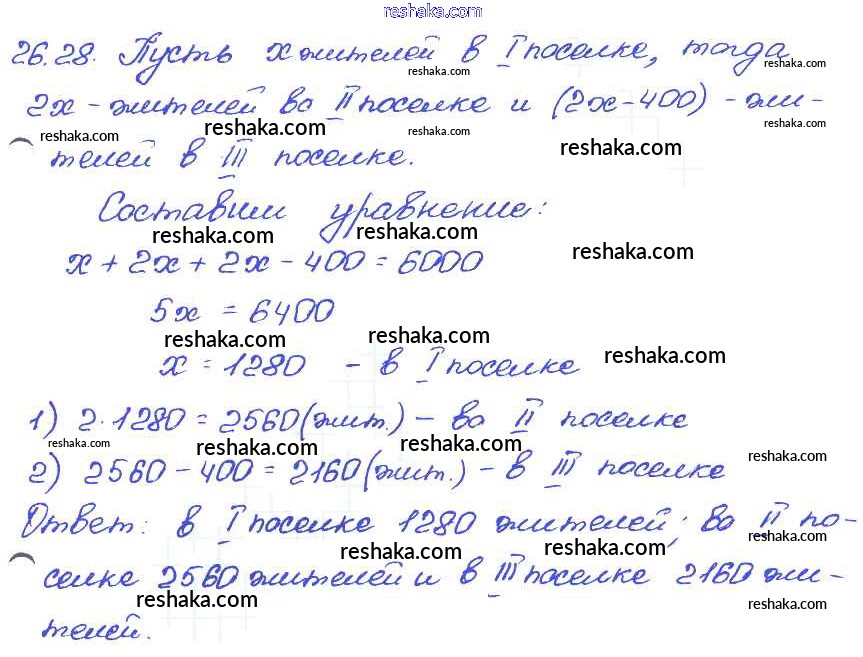 reshaka.com
26.28. Пусть x жителей в I поселке, тогда
reshaka.com reshaka.com
2x - жителей во II поселке и (2x-400) - жи-
reshaka.com reshaka.com reshaka.com reshaka.com
телей в III поселке.
reshaka.com
Составим уравнение:
reshaka.com reshaka.com reshaka.com
x + 2x + 2x - 400 = 6000
5x = 6400
reshaka.com reshaka.com reshaka.com
x = 1280 - в I поселке
1) 2·1280 = 2560 (жит.) - во II поселке
reshaka.com reshaka.com reshaka.com reshaka.com
2) 2560 - 400 = 2160 (жит.) - в III поселке
Ответ: в I поселке 1280 жителей; во II по-
reshaka.com reshaka.com reshaka.com
селке 2560 жителей и в III поселке 2160 жи-
reshaka.com reshaka.com
телей.